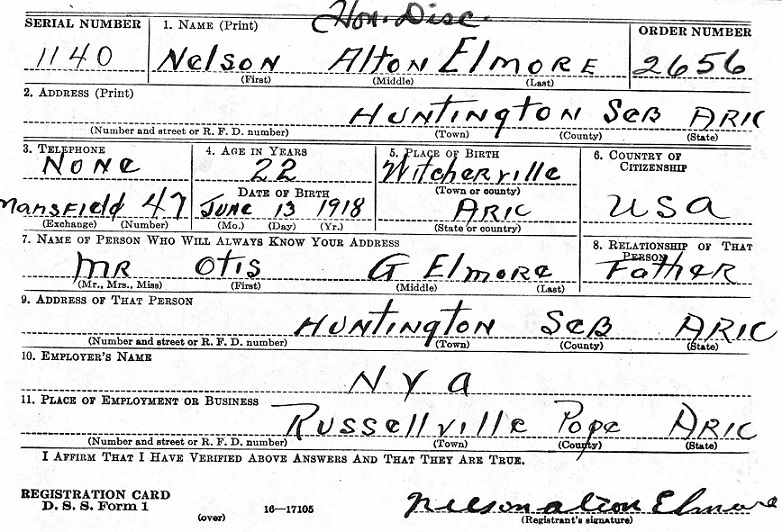 Hon. Disc.
SERIAL NUMBER 1. NAME (Print) ORDER NUMBER
1140 NElSON AltON ElMORE 2656
(First) (Middle) (Last)
2. ADDRESS (Print)
HUNTINGTON SEB ARK
(Number and street or R. F. D. number) (Town) (County) (State)
3. TELEPHONE 4. AGE IN YEARS 5. PLACE OF BIRTH 6. COUNTRY OF CITIZENSHIP
NONE 22 Witcherville
DATE OF BIRTH (Town or county)
Mansfield 47 JUNE 13 1918 ARK USA
(Exchange) (Number) (Mo.) (Day) (Yr.) (State or country)
7. NAME OF PERSON WHO WILL ALWAYS KNOW YOUR ADDRESS 8. RELATIONSHIP OF THAT PERSON
MR OtiS G ElMORE FatHER
(Mr., Mrs., Miss) (First) (Middle) (Last)
9. ADDRESS OF THAT PERSON
HUNTINGTON SEB ARK
(Number and street or R. F. D. number) (Town) (County) (State)
10. EMPLOYER'S NAME
N Y A
11. PLACE OF EMPLOYMENT OR BUSINESS
RUSSEllVillE Pope ARK
(Number and street or R. F. D. number) (Town) (County) (State)
I AFFIRM THAT I HAVE VERIFIED ABOVE ANSWERS AND THAT THEY ARE TRUE.
REGISTRATION CARD
D. S. S. Form 1 (over) 16—17105 Nelson Alton Elmore
(Registrant's signature)